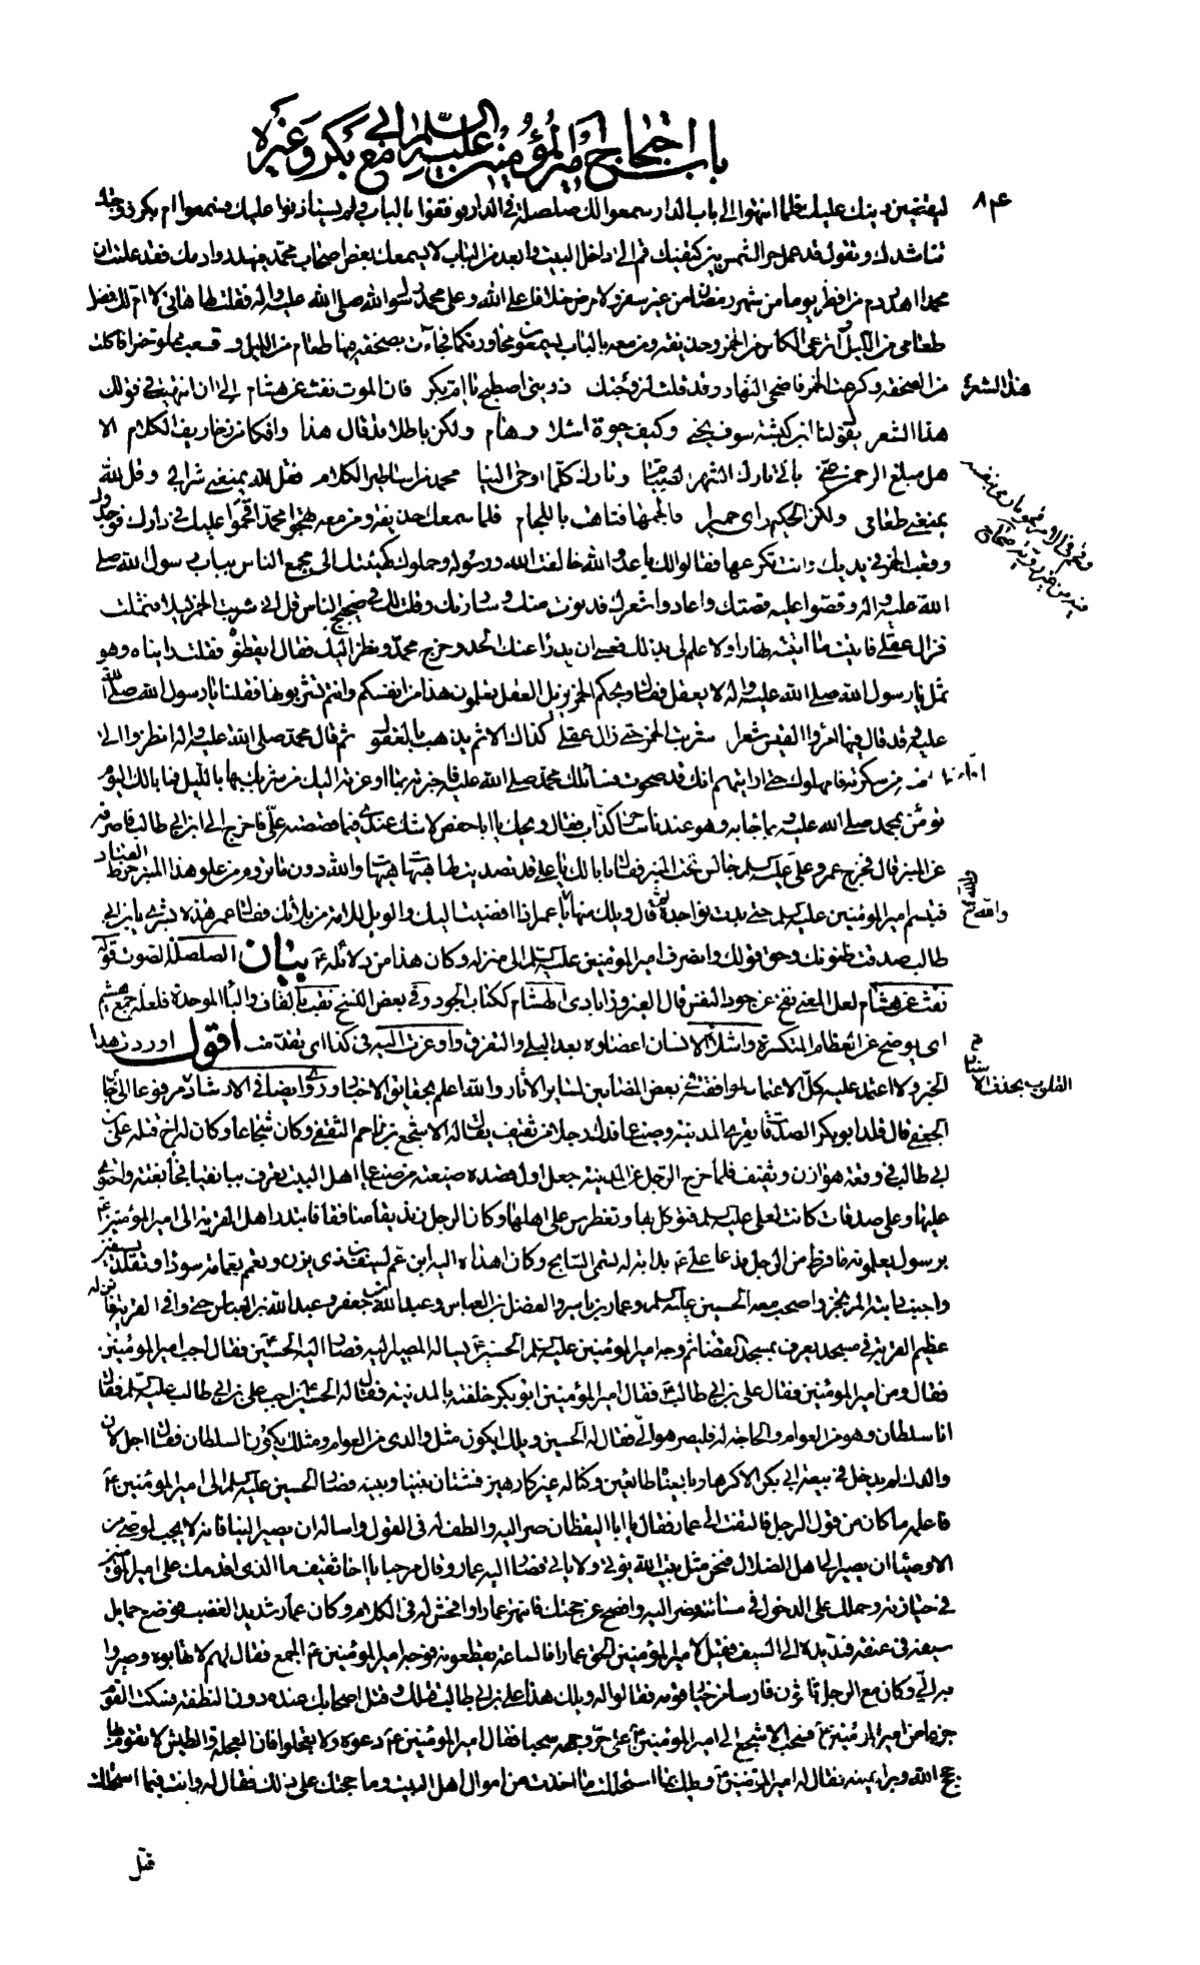 باب احتجاج أمير المؤمنين عليه السلام مع أبي بكر وغيره
ليفتضحن دينك عليك فلما انتهوا إلى باب الدار سمعوا لك صلصلة في الدار فوقفوا بالباب ولم يستأذنوا عليك فسمعوا ام بكر زوجتك
تناشدك وتقول قد عمل حر الشمس بين كتفيك قم إلى داخل البيت وابعد من الباب لا يسمعك بعض اصحاب محمد فيهدروا دمك فقد علمت ان
محمدا اهدر دم من افطر يوما من شهر رمضان من غير سفر ولا مرض خلافا على الله وعلى محمد رسول الله صلى الله عليه واله فقلت لها هاتي لا ام لك فضل
طعامي من الليل واترعي الكاس من الخمر وحذيفة ومن معه بالباب يسمعون محاورتكما فجاءت بصحفة فيها طعام من الليل وقعب مملو خمرا فاكلت
من الصحفة وكرعت الخمر فاضحى النهار وقد قلت لزوجتك ذريني اصطبح يا ام بكر فان الموت نفث عن هشام إلى ان انتهيت في قولك
هذا الشعر
هذا الشعر يقول لنا ابن كبشة سوف نحيى وكيف حيوة اشلاء وهام ولكن باطلا ما قال هذا وافكا من زخاريف الكلام الا
هل مبلغ الرحمن عني باني تارك الشهر الصيام وتارك كلما اوحى الينا محمد من اساطير الكلام فقل لله يمنعني شرابي وقل لله
يمنعني طعامي ولكن الحكيم راى حميرا فالجمها فتاهت باللجام فلما سمعك حذيفة ومن معه تهجو محمدا اقتحموا عليك في دارك فوجدوك
وقعب الخمر في يديك وانت تكرعها فقالوا لك يا عدو الله خالفت الله ورسوله وحملوك كهيئتك إلى مجمع الناس بباب رسول الله صلى
الله عليه واله وقصوا عليه قصتك واعادوا شعرك فدنوت منك وساررتك وقلت لك في ضجيج الناس قل اني شربت الخمر ليلا فثملت
فزال عقلي فاتيت ما اتيته نهارا ولا علم لي بذلك فعسى ان يدرأ عنك الحد وخرج محمد ونظر اليك فقال ايقظوه فقلت رايناه وهو
ثمل يا رسول الله صلى الله عليه واله لا يعقل فقال ويحكم الخمر يزيل العقل تعلمون هذا من انفسكم وانتم تشربونها فقلنا يا رسول الله صلى الله
عليه واله قد قال فيها امرؤ القيس شعرا شربت الخمر حتى زال عقلي كذاك الاثم يذهب بالعقول ثم قال محمد صلى الله عليه واله انظروا الى
نؤمن بمحمد صلى الله عليه واله بما جاء به وهو عندنا ساحر كذاب فقال ويحك يا ابا حفص لا شك عندي فيما قصصته علي فاخرج إلى ابن ابي طالب فاصرفه
عن المنبر قال فخرج عمر وعلي عليه السلم جالس تحت المنبر فقال ما بالك يا علي قد تصديت لها هيهات هيهات والله دون ما تروم من علو هذا المنبر خرط القتاد
فتبسم امير المؤمنين عليه السلم حتى بدت نواجذه ثم قال ويلك منها يا عمر اذا افضيت اليك والويل للامة من بلائك فقال عمر هذه بشرى يا بن ابي
طالب صدقت ظنونك وحق قولك وانصرف امير المؤمنين عليه السلم الى منزله وكان هذا من دلائله ع بيان الصلصلة الصوت قوله
نفث عن هشام لعل المعنى نفخ عن جود النفس قال الفيروزابادي الهشام ككتاب الجود وفي بعض النسخ نقب بالقاف والباء الموحدة فلعله جمع هشيم
اي يوضح عن العظام المتكسرة واشلاء الانسان اعضاؤه بعد البلى والتفرق واوعزت اليه في كذا اي تقدمت اقول اورد هذا
الخبر ولا اعتمد عليه كل الاعتماد لموافقته في بعض المضامين لساير الاثار والله اعلم بحقايق الاخبار وروى ايضا في الارشاد مرفوعا الى جابر
الجعفي قال قلد ابو بكر الصدقات بقرى المدينة وضياع فدك رجلا من ثقيف يقال له الاشجع بن مزاحم الثقفي وكان شجاعا وكان له اخ قتله علي بن
ابي طالب في وقعة هوازن وثقيف فلما خرج الرجل عن المدينة جعل اول قصده ضيعة من ضياع اهل البيت تعرف ببانقيا فجاء بغتة واحتوى
عليها وعلى صدقات كانت لعلي عليه السلم فتوكل بها وتغطرس على اهلها وكان الرجل زنديقا منافقا فابتدر اهل القرية الى امير المؤمنين ع
برسول يعلمونه ما فرط من الرجل فدعا علي ع بدابة له تسمى السابح وكان اهداه اليه ابن عم لسيف ذي يزن وتعمم بعمامة سوداء وتقلد بسيفين
واجنب دابته المرتجز واصحب معه الحسين عليه السلم وعمار بن ياسر والفضل بن العباس وعبد الله بن جعفر وعبد الله بن العباس حتى وافى القرية فانزله
عظيم القرية في مسجد يعرف بمسجد القضاء ثم وجه امير المؤمنين عليه السلم الحسين ع يساله المصير اليه فصار اليه الحسين فقال اجب امير المؤمنين
فقال ومن امير المؤمنين فقال علي بن ابي طالب ع فقال امير المؤمنين ابو بكر خلفته بالمدينة فقال له الحسين ع اجب علي بن ابي طالب عليه السلم فقال
انا سلطان وهو من العوام والحاجة له فليصر هو الي فقال له الحسين ويلك ايكون مثل والدي من العوام ومثلك يكون السلطان فقال اجل لان
والدك لم يدخل في بيعة ابي بكر الا كرها وبايعنا طائعين وكنا له غير كارهين فشتان بيننا وبينه فصار الحسين عليه السلم الى امير المؤمنين ع
فاعلمه ما كان من قول الرجل فالتفت الى عمار فقال يا ابا اليقظان صر اليه والطف له في القول واساله ان يصير الينا فانه لا يجب لوصي من
الاوصياء ان يصير الى اهل الضلال فنحن مثل بيت الله يؤتى ولا ياتي فصار اليه عمار وقال مرحبا يا اخا ثقيف ما الذي اقدمك على امير المؤمنين
في حيازته وحملك على الدخول في مسائته فصر اليه وافصح عن حجتك فانتهر عمارا وافحش له في الكلام وكان عمار شديد الغضب فوضع حمايل
سيفه في عنقه فمد يده الى السيف فقيل لامير المؤمنين الحق عمارا فالساعة يقطعونه فوجه امير المؤمنين ع الجمع فقال لهم لا تهابوه وصيروا
به الي وكان مع الرجل ثلثون فارسا من خيار قومه فقالوا له ويلك هذا علي بن ابي طالب قتلك وقتل اصحابك عنده دون النطفة فسكت القوم
جزعا من امير المؤمنين ع فسحب الاشجع الى امير المؤمنين ع على حر وجهه سحبا فقال امير المؤمنين ع دعوه ولا تعجلوا فان العجلة والطيش لا تقوم بها
حجج الله وبراهينه فقال له امير المؤمنين ع ويلك بما استحللت ما اخذت من اموال اهل البيت وما حجتك على ذلك فقال له وانت فيما استحللت
قتل